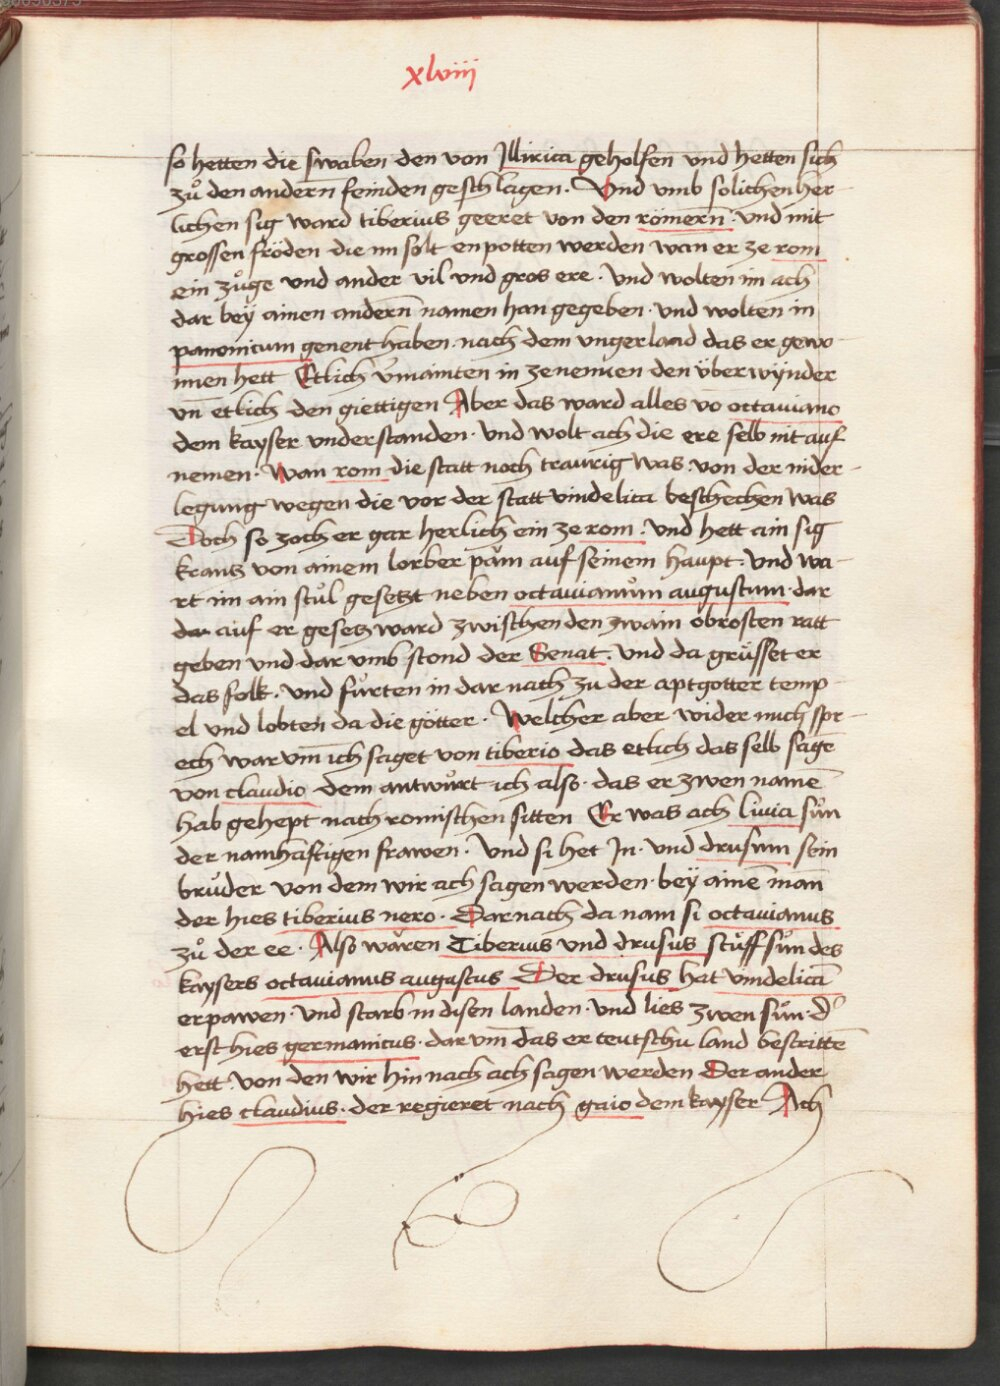 xlviii
so hetten die swaben den von Jllirica geholfen vnd hetten sich
zů den andern feinden geschlagen. Vnd vmb solichen her
lichen sig ward tiberius geeret von den römern̄. vnd mit
grossen fröden die im solt enpotten werden wān er ze rom
ein zůge vnd ander vil vnd gros ere. vnd wolten im ach
dar beÿ ainen andern̄ namen han gegeben. vnd wolten in
panonicum genent haben nach dem vngerland das er gewo
nnen hett Etlich v̄mainten in ze nennen den v̈berwÿnder
vn̄ etlich den giettigen Aber das ward alles vō octauiano
dem kayser vnderstanden. vnd wolt ach die ere selb nit auf
nemen. Wan rom die statt noch traurig was von der nider
legung wegen die vor der statt vindelica beschechen was
Doch so zoch er gar herlich ein ze rom. vnd hett ain sig
krantz von ainem lorber päm auf seinem haupt. vnd wa
rt im ain stůl gesetzt neben octauianům augustum. dar
dar auf er gesetz ward zwischen den zwain obrosten ratt
geben vnd dar vmb stond der Senat. vnd da grüsset er
das folk. vnd fůrten in dar nach zu der aptgotter temp
el vnd lobten da die götter. Welcher aber wider mich spr
ech war vm̄ ich saget von tiberio das etlich das selb sagē
von claudio dem antwůrt ich also. das er zwen namē
hab gehept nach romischen sitten Er was ach liuia sůn
der namhäftigen frawen. vnd si het Jn. vnd drusum sein
brůder von dem wir ach sagen werden. beÿ ainē man̄
der hies tiberius nero. Dar nach da nam si octauianus
zů der ee. Also wären Tiberius vnd drusus stůff sůn des
kaysers octauianus augustus Der drusus hat vindelicā
erpawen. vnd starb in disen landen. vnd lies zwen sůn. d'
erst hies germanicus. dar vm̄ das er teutschu land bestrittē
hett. von den wir hin nach ach sagen werden Der ander
hies claudius. der regieret nach gaio dem kayser Ach